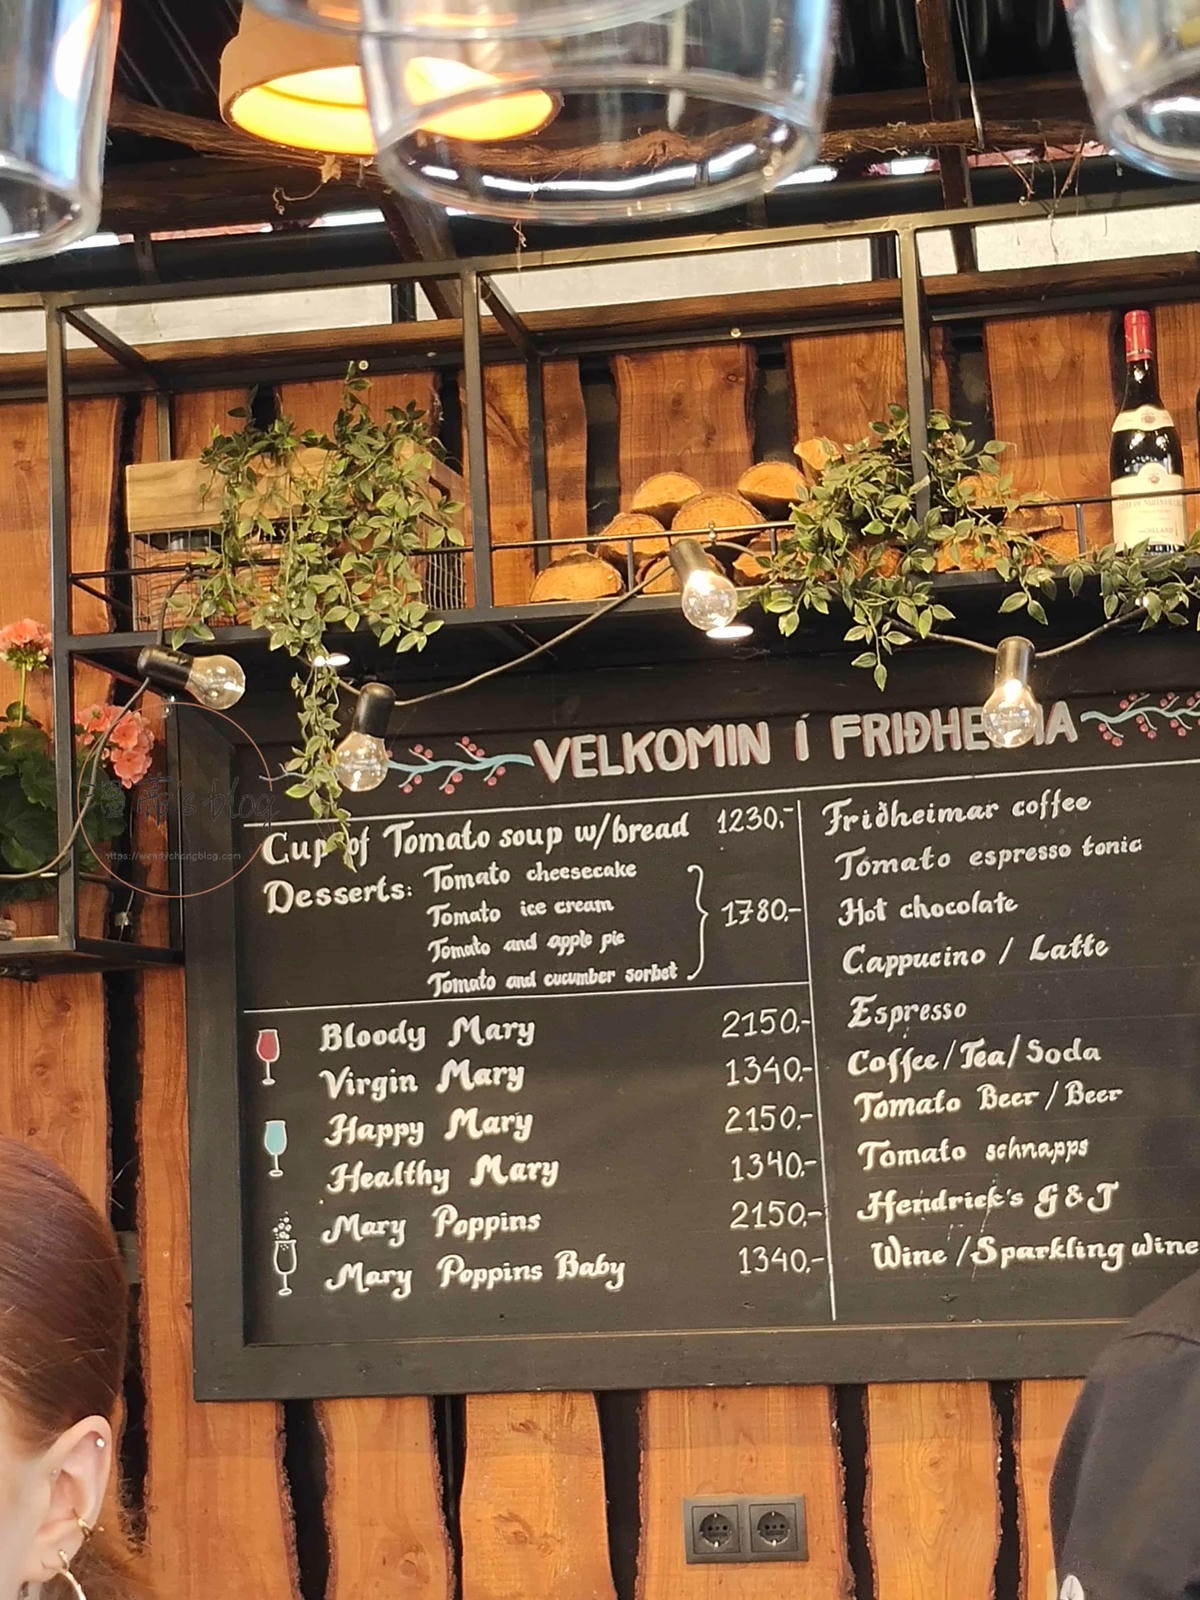 VELKOMIN Í FRIÐHEIMA
Cup of Tomato soup w/bread 1230,-
Desserts: Tomato cheesecake
Tomato ice cream
Tomato and apple pie
Tomato and cucumber sorbet
1780,-
Bloody Mary 2150,-
Virgin Mary 1340,-
Happy Mary 2150,-
Healthy Mary 1340,-
Mary Poppins 2150,-
Mary Poppins Baby 1340,-
Friðheimar coffee
Tomato espresso tonic
Hot chocolate
Cappucino / Latte
Espresso
Coffee/Tea/Soda
Tomato Beer / Beer
Tomato schnapps
Hendrick's G&T
Wine /Sparkling wine
's blog
https://wendychangblog.com